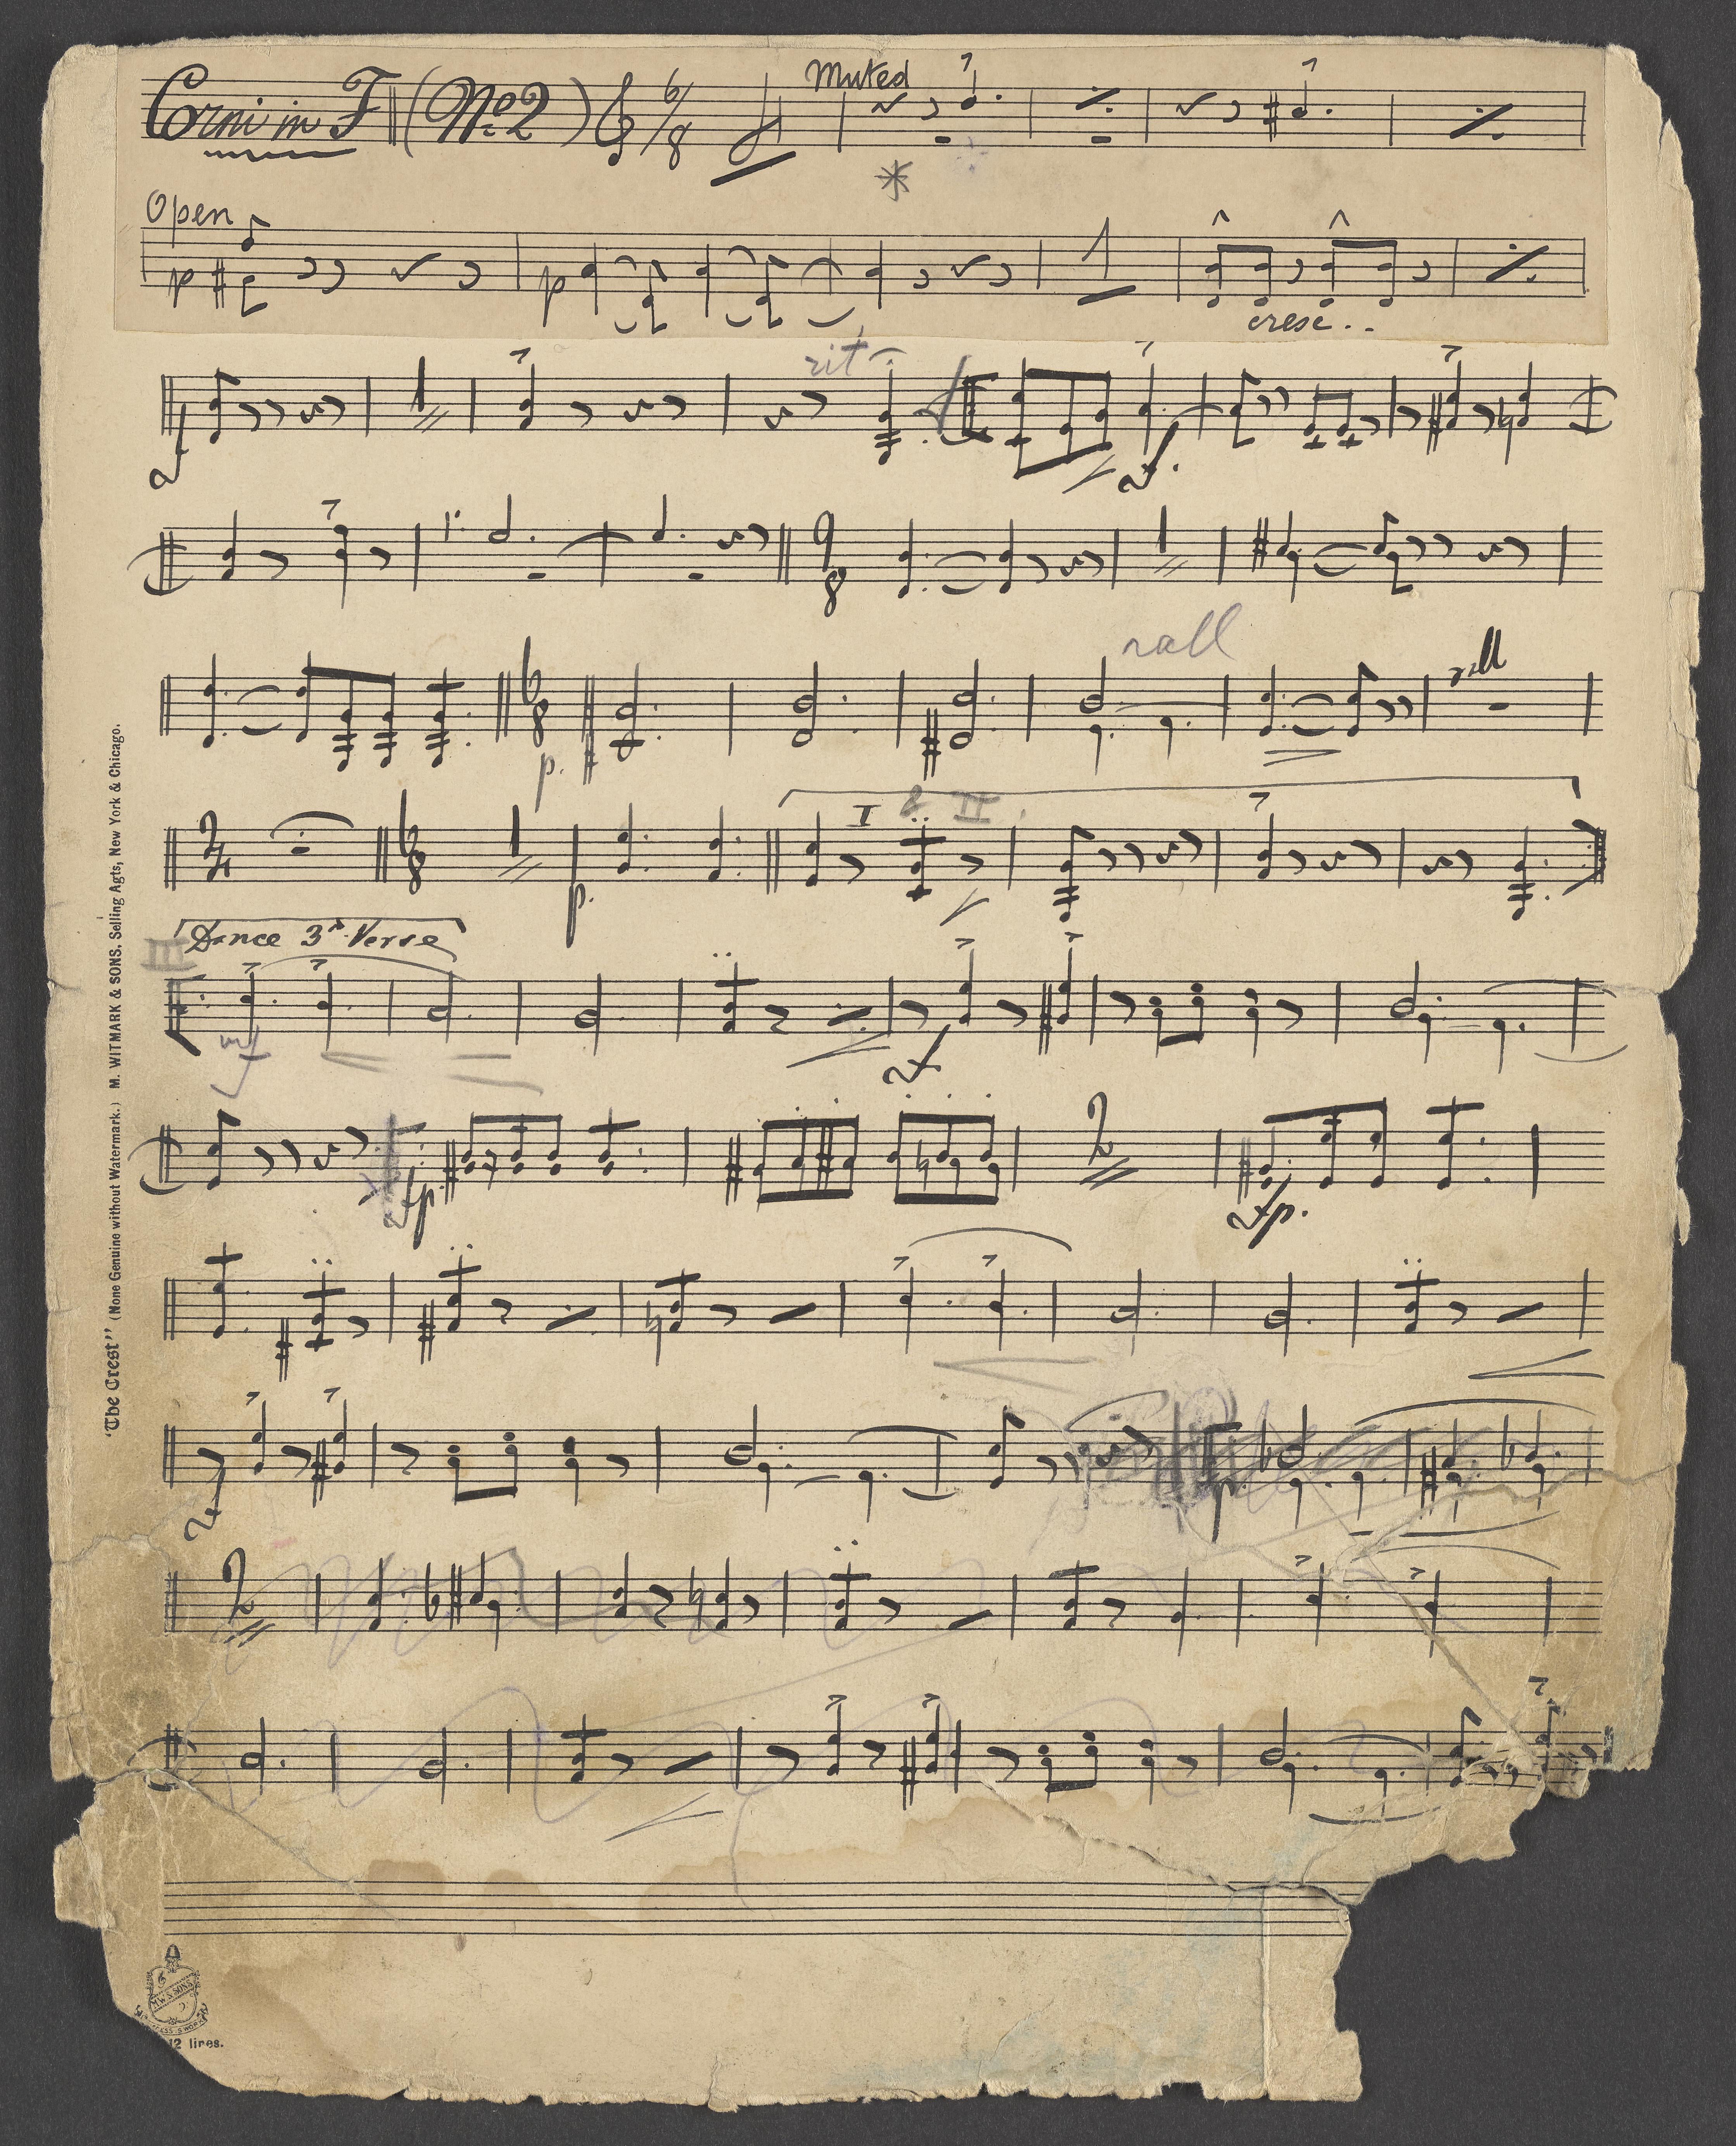 Corni in F (No 2) 6/8 Muted
Open
p p cresc..
f rit f.
9/8
rall rall
6/8 p.
I & II.
2/4 6/8 p.
III Dance 3rd Verse
mf f
fp 2 fp.
f p
2
"The Crest" (None Genuine without Watermark.) M. WITMARK & SONS. Selling Agts, New York & Chicago.
M.W.& SONS
12 lines.